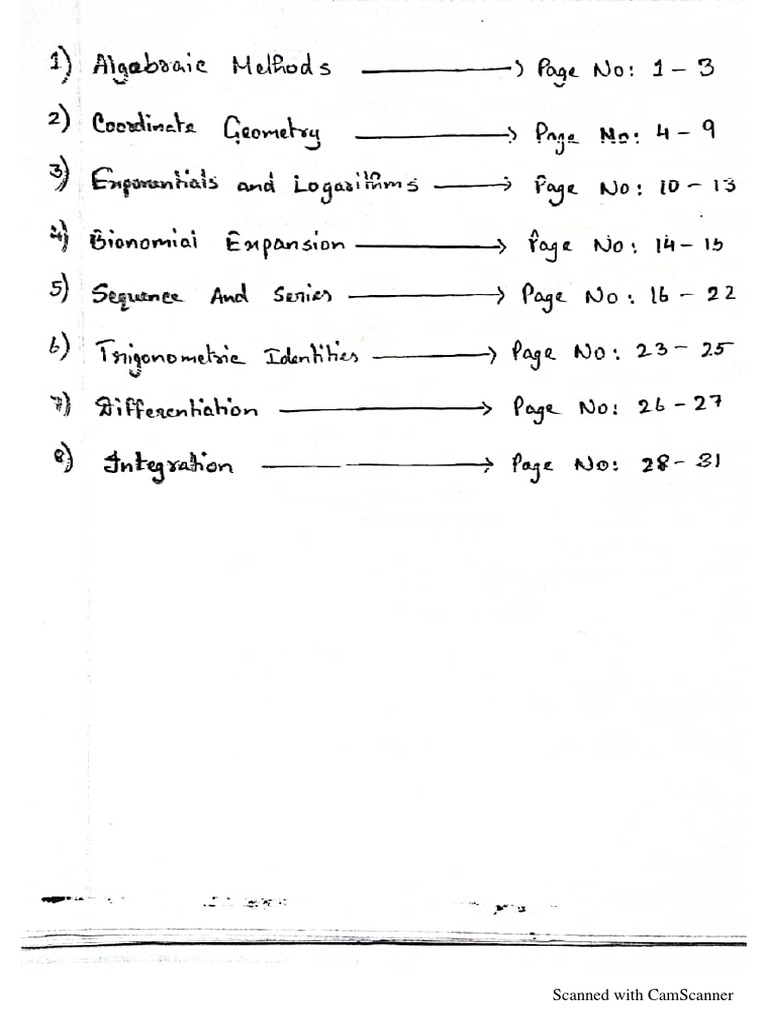 1) Algebraic Methods → Page No: 1 - 3
2) Coordinate Geometry → Page No: 4 - 9
3) Exponentials and Logarithms → Page No: 10 - 13
4) Bionomial Expansion → Page No: 14 - 15
5) Sequence And Series → Page No: 16 - 22
6) Trigonometric Identities → Page No: 23 - 25
7) Differentiation → Page No: 26 - 27
8) Integration → Page No: 28 - 31
Scanned with CamScanner